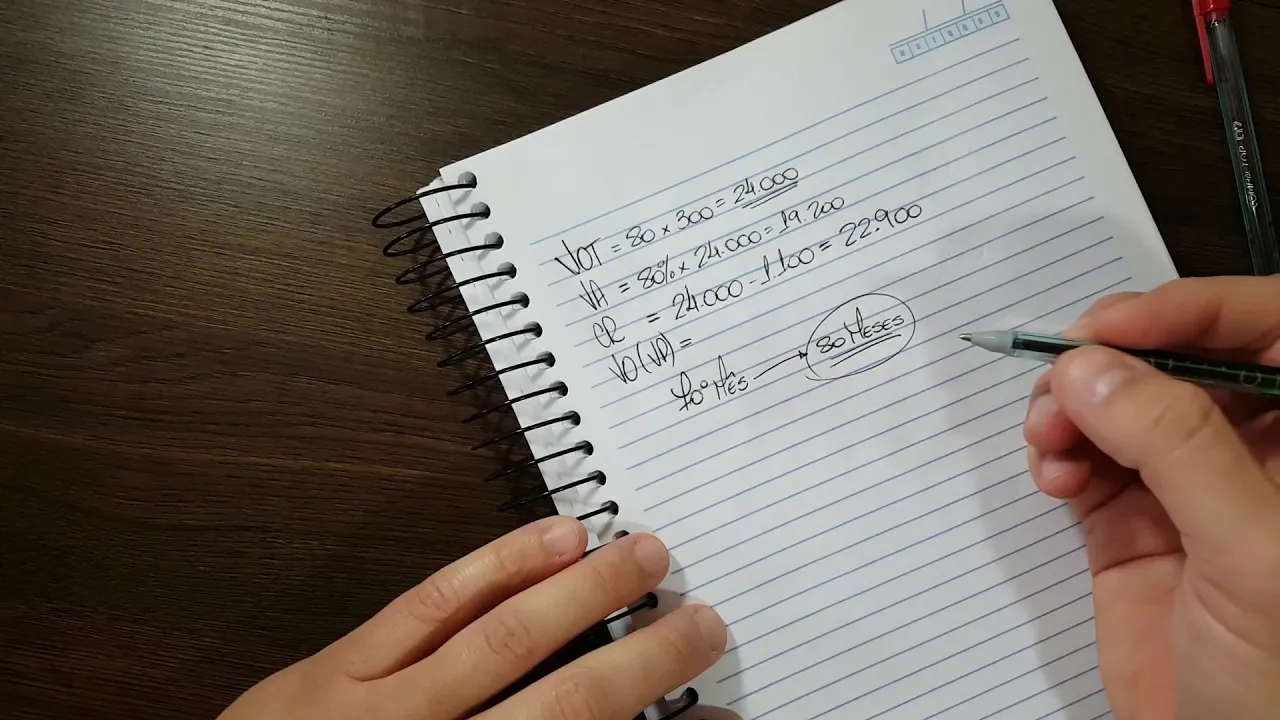 VOT = 80 x 300 = 24.000
VA = 80% x 24.000 = 19.200
CR = 24.000 - 1.100 = 22.900
VO(VP) =
10º MÊS → 80 MESES
COMPACTOR